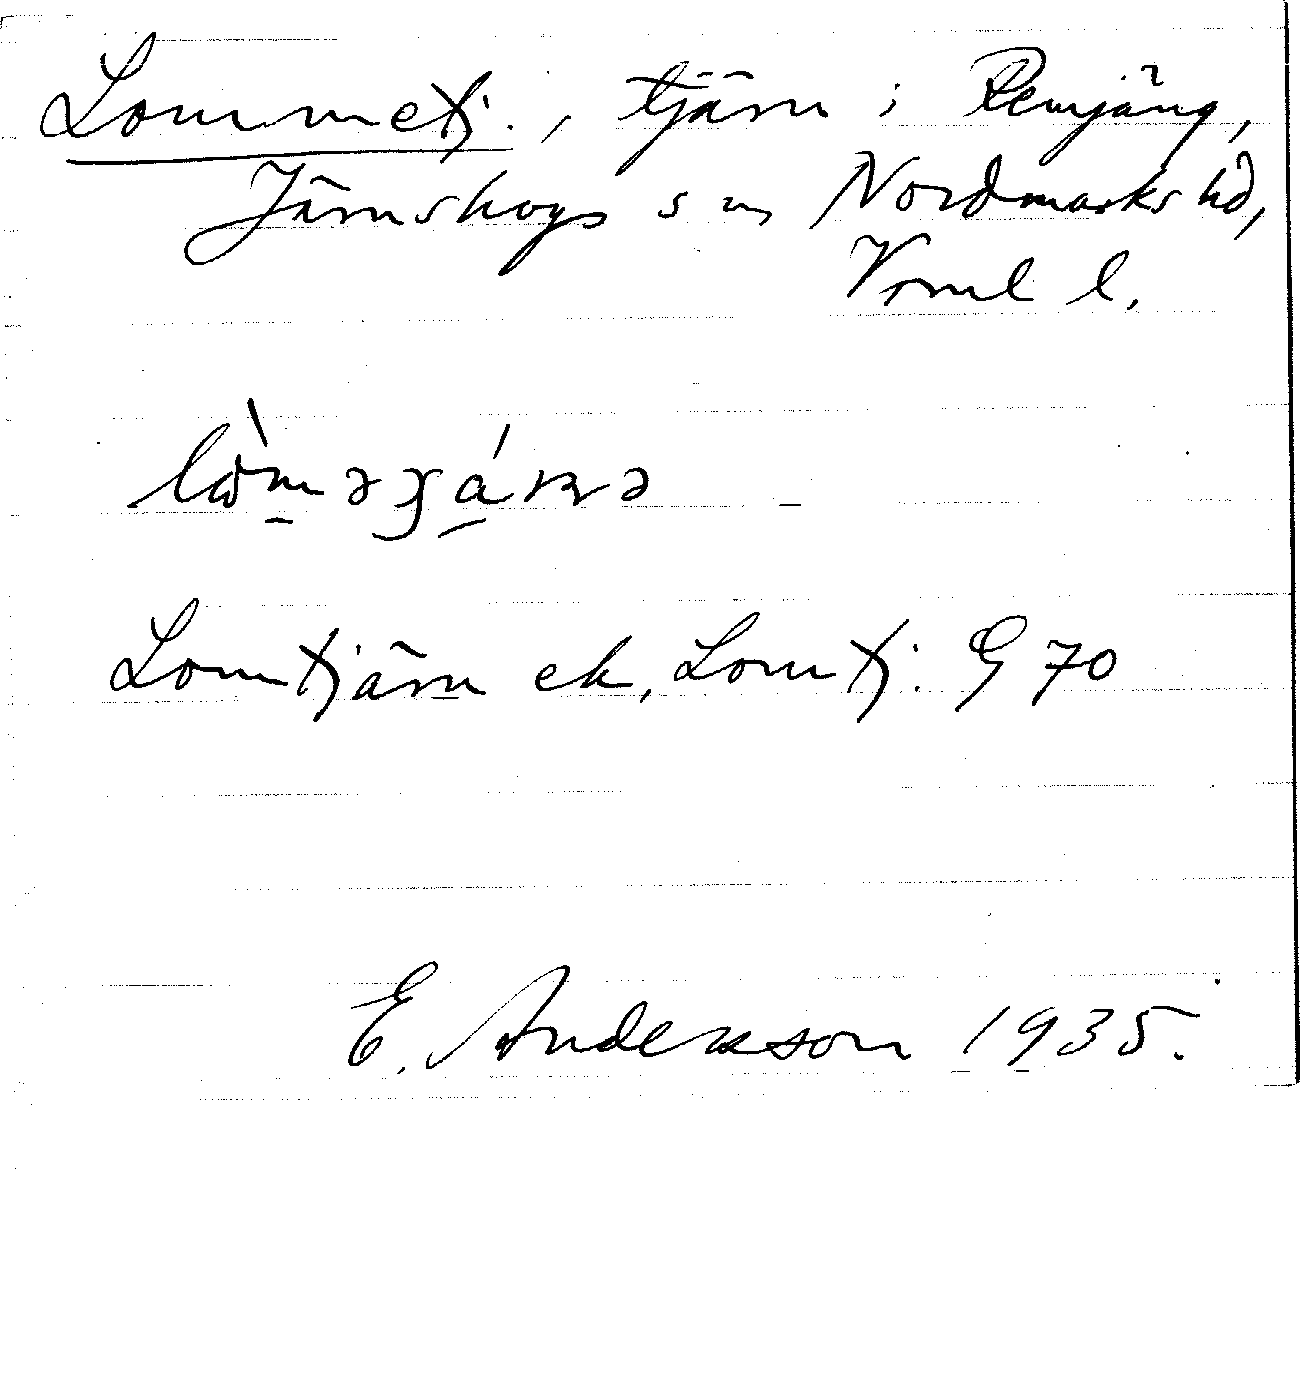 Lommetj., tjärn i Remjäng,
Järnskogs sn, Nordmarks hd,
Vrml l.
Lomtjärn ek, Lomtj. G 70
E. Andersson 1935.